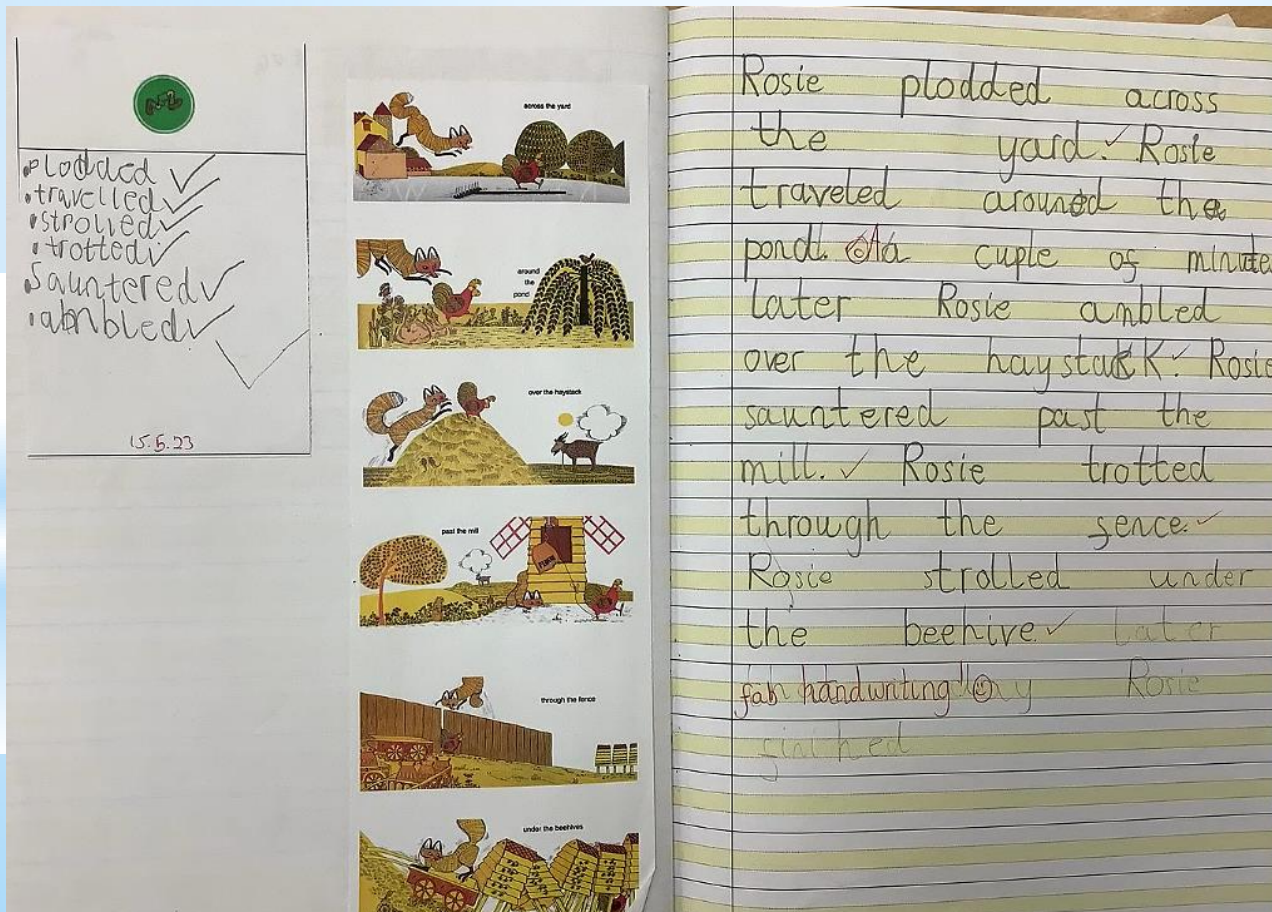 plodded ✓
travelled ✓
strolled ✓
trotted ✓
Sauntered ✓
ambled ✓
15.5.23
across the yard
around
the
pond
over the haystack
past the mill
through the fence
under the beehives
Rosie plodded across
the yard. ✓ Rosie
traveled around the
pond. A cuple of minute
later Rosie ambled
over the haystack. ✓ Rosie
sauntered past the
mill. ✓ Rosie trotted
through the fence. ✓
Rosie strolled under
the beehive. ✓ later
fab handwriting! Rosie